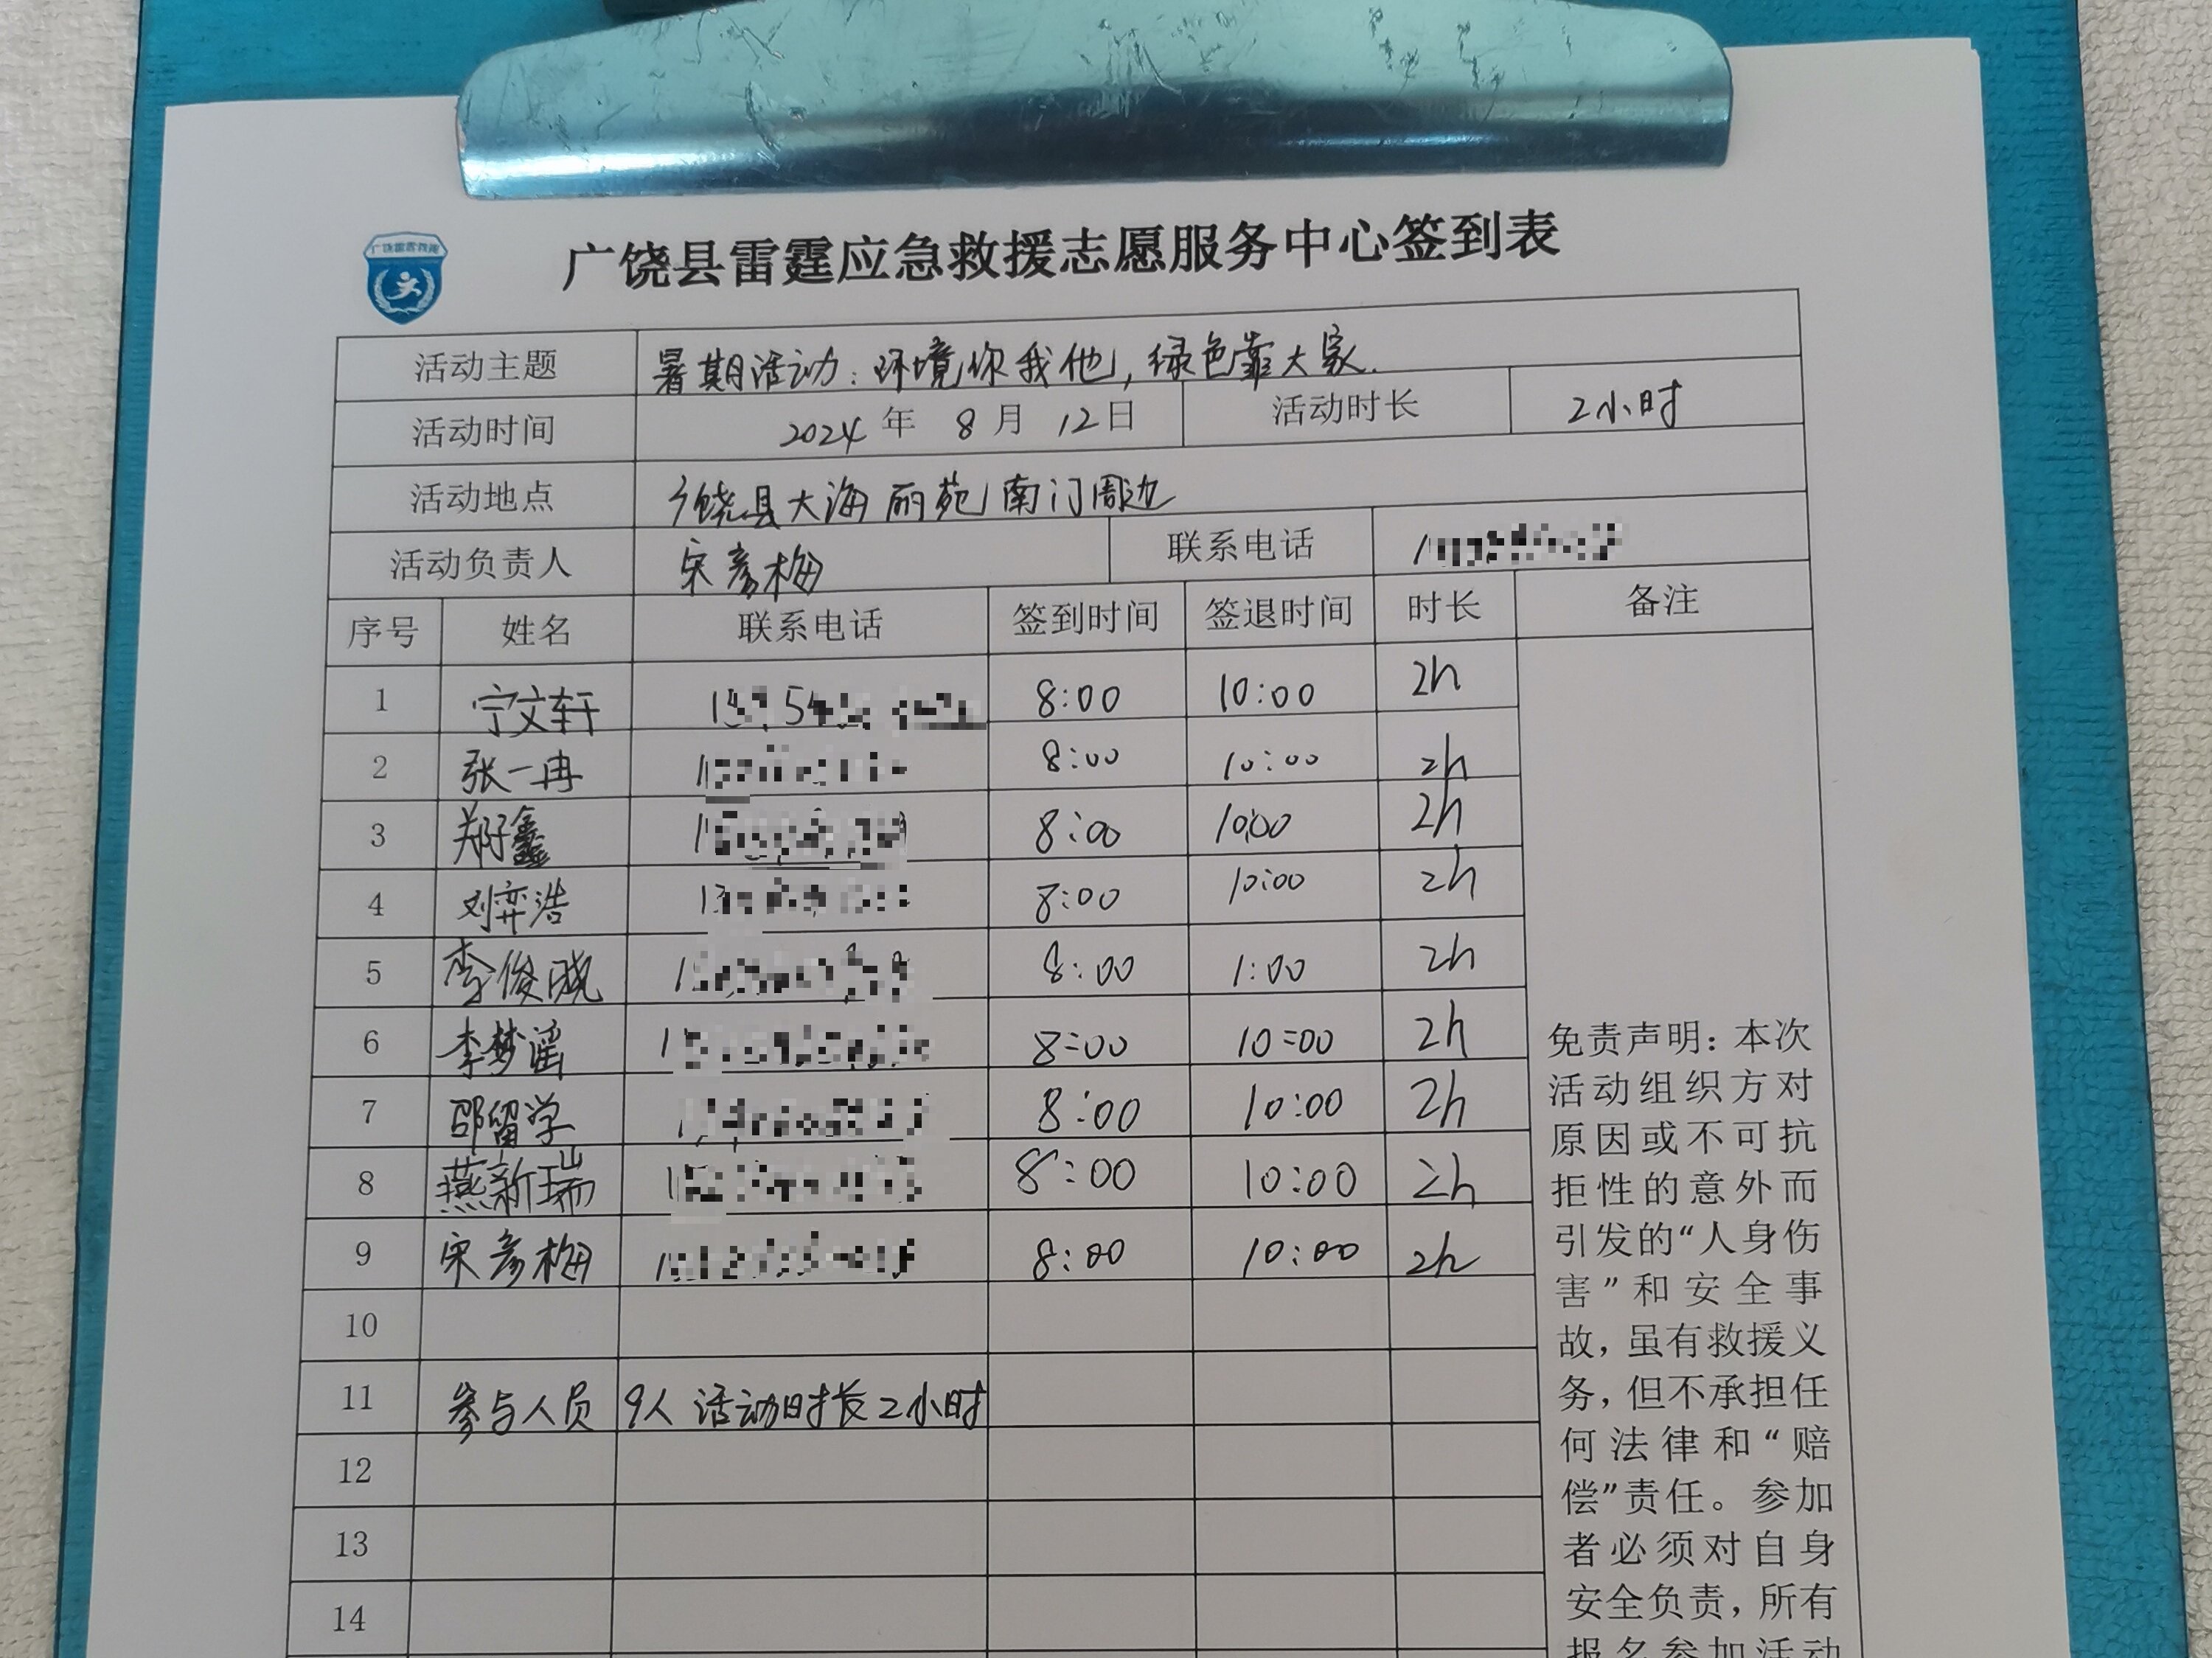 广饶县雷霆应急救援志愿服务中心签到表
活动主题 暑期活动：环境你我他，绿色靠大家.
活动时间 2024 年 8 月 12 日 活动时长 2小时
活动地点 广饶县大海丽苑南门周边
活动负责人 宋彦梅 联系电话 1
序号 姓名 联系电话 签到时间 签退时间 时长 备注
1 宁文轩 8:00 10:00 2h
2 张一冉 1 8:00 10:00 2h
3 郑子鑫 1 8:00 10:00 2h
4 刘弈浩 13 8:00 10:00 2h
5 李俊晓 1 8:00 1:00 2h
6 李梦谣 1 8:00 10:00 2h
7 邵留学 8:00 10:00 2h
8 燕新瑞 1 8:00 10:00 2h
9 宋彦梅 1 8:00 10:00 2h
10
11 参与人员 9人 活动时长2小时
12
13
14
免责声明：本次
活动组织方对
原因或不可抗
拒性的意外而
引发的“人身伤
害”和安全事
故，虽有救援义
务，但不承担任
何法律和“赔
偿”责任。参加
者必须对自身
安全负责，所有
报名参加活动